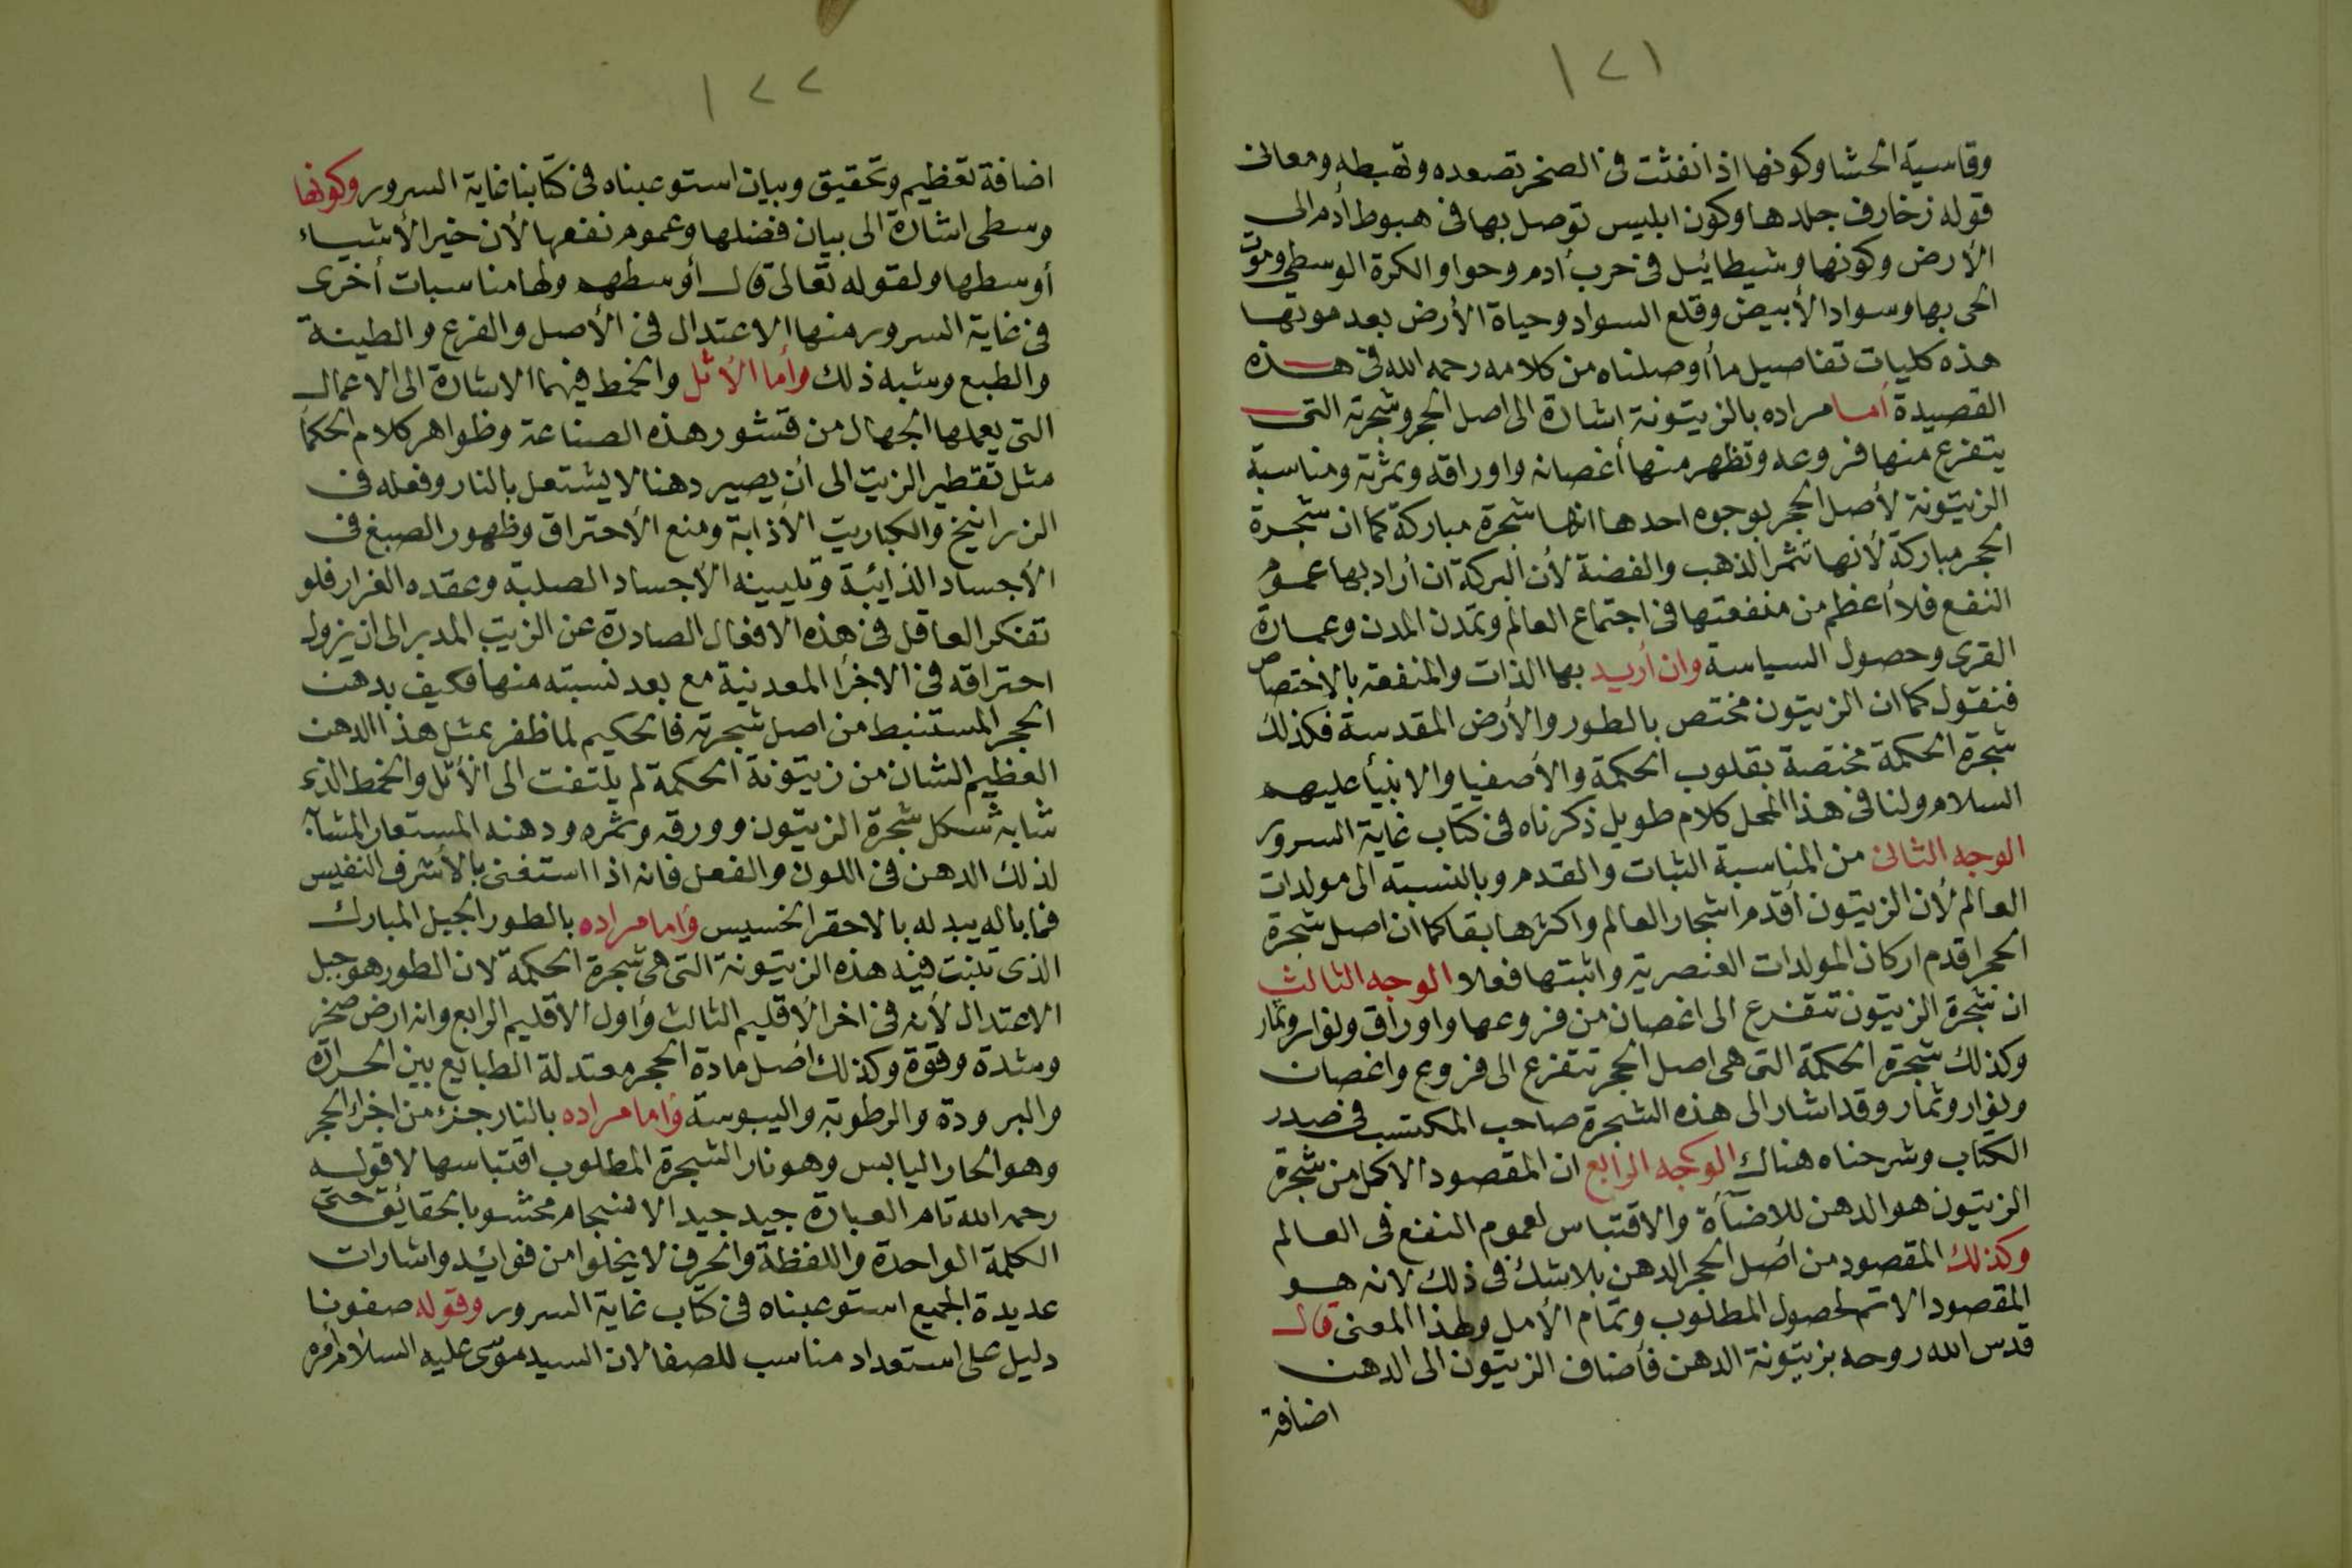 ١٢١
وقاسية الحشا وكونها اذا نفثت فى الصخر تصعده وتهبطه ومعانى
قوله زخارف جلدها وكون ابليس توصل بها فى هبوط أدم الى
الأرض وكونها وشيطائيل فى حرب أدم وحوا والكرة الوسطى وموت
الحى بها وسواد الأبيض وقلع السواد وحياة الأرض بعد موتها
هذه كليات تفاصيل ما أوصلناه من كلامه رحمه الله فى هذه
القصيدة أما مراده بالزيتونة اشارة الى اصل الحجر وشجرته التى
يتفرع منها فروعه وتظهر منها أغصانه واوراقه وثمرته ومناسبة
الزيتونة لأصل الحجر بوجوه احدها انها شجرة مباركة كما ان شجرة
الحجر مباركة لأنها تثمر الذهب والفضة لأن البركة ان أراد بها عموم
النفع فلا أعظم من منفعتها فى اجتماع العالم وتمدن المدن وعمارة
القرى وحصول السياسة وان أريد بها الذات والمنفعة بالاختصاص
فنقول كما ان الزيتون مختص بالطور والأرض المقدسة فكذلك
شجرة الحكمة مختصة بقلوب الحكمة والأصفيا والانبيأ عليهم
السلام ولنا فى هذا المحل كلام طويل ذكرناه فى كتاب غاية السرور
الوجه الثانى من المناسبة الثبات والقدم وبالنسبة الى مولدات
العالم لأن الزيتون أقدم اشجار العالم واكثرها بقا كما ان اصل شجرة
الحجر اقدم اركان المولدات العنصرية واثبتها فعلا الوجه الثالث
ان شجرة الزيتون تتفرع الى اغصان من فروعها واوراق ونوار وثمار
وكذلك شجرة الحكمة التى هى اصل الحجر تتفرع الى فروع واغصان
ونوار وثمار وقد اشار الى هذه الشجرة صاحب المكتسب فى صدر
الكتاب وشرحناه هناك الوجه الرابع ان المقصود الاكمل من شجرة
الزيتون هو الدهن للاضآأة والاقتباس لعموم النفع فى العالم
وكذلك المقصود من اصل الحجر الدهن بلا شك فى ذلك لانه هو
المقصود الاتم لحصول المطلوب وتمام الأمل ولهذا المعنى قال
قدس الله روحه بزيتونة الدهن فأضاف الزيتون الى الدهن
اضافة
١٢٢
اضافة تعظيم وتحقيق وبيان استوعبناه فى كتابنا غاية السرور وكونها
وسطى اشارة الى بيان فضلها وعموم نفعها لأن خير الأشياء
أوسطها ولقوله تعالى قال أوسطهم ولها مناسبات أخرى
فى غاية السرور منها الاعتدال فى الأصل والفرع والطينة
والطبع وشبه ذلك وأما الأثل والخمط فيهما الاشارة الى الاعمال
التى يعملها الجهال من قشور هذه الصناعة وظواهر كلام الحكما
مثل تقطير الزيت الى ان يصير دهنا لا يشتعل بالنار وفعله فى
الزرانيخ والكباريت الأذابة ومنع الأحتراق وظهور الصبغ فى
الأجساد الذائبة وتليينه الأجساد الصلبة وعقده الفرار فلو
تفكر العاقل فى هذه الافعال الصادرة عن الزيت المدبر الى ان يزول
احتراقه فى الاخرأ المعدنية مع بعد نسبته منها فكيف بدهن
الحجر المستنبط من اصل شجرته فالحكيم لما ظفر بمثل هذا الدهن
العظيم الشان من زيتونة الحكمة لم يلتفت الى الأثل والخمط الذى
شابه شكل شجرة الزيتون وورقه وثمره ودهنه المستعار المشابه
لذلك الدهن فى اللون والفعل فانه اذا استغنى بالأشرف النفيس
فما باله يبدله بالاحقر الخسيس وأما مراده بالطور الجبل المبارك
الذى تنبت فيه هذه الزيتونة التى هى شجرة الحكمة لان الطور هو جبل
الاعتدال لأنه فى اخر الأقليم الثالث وأول الأقليم الرابع وانه ارض صخر
وشدة وقوة وكذلك اصل مادة الحجر معتدلة الطبايع بين الحرارة
والبرودة والرطوبة واليبوسة وأما مراده بالنار جزء من اخراء الحجر
وهو الحار اليابس وهو نار الشجرة المطلوب اقتباسها لا قوله
رحمه الله تام العبارة جيد جيد الانسجام محشو بالحقايق حتى
الكلمة الواحدة واللفظة والحرف لا يخلوا من فوائد واشارات
عديدة الجميع استوعبناه فى كتاب غاية السرور وقوله صفونا
دليل على استعداد مناسب للصفا لان السيد موسى عليه السلام أمره